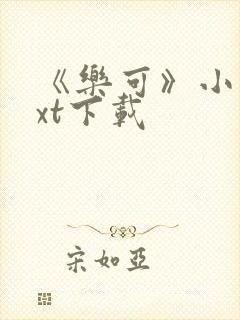 《樂可》小
xt下載
宋如亞